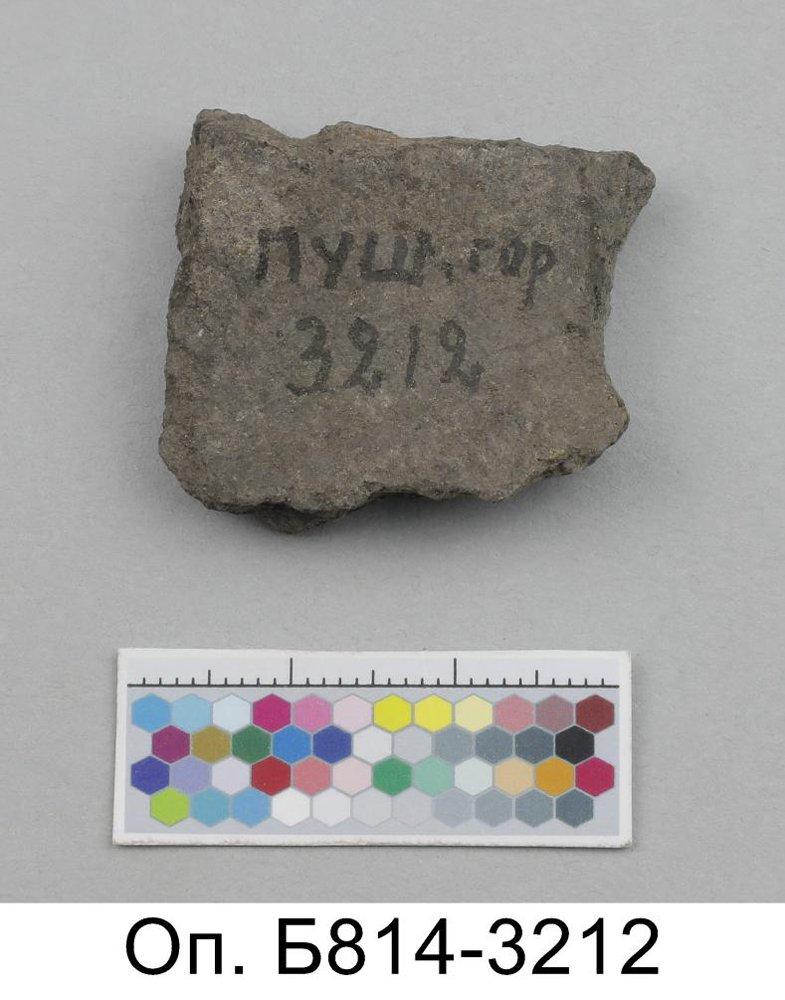 ПУШ. гор
3212
Оп. Б814-3212